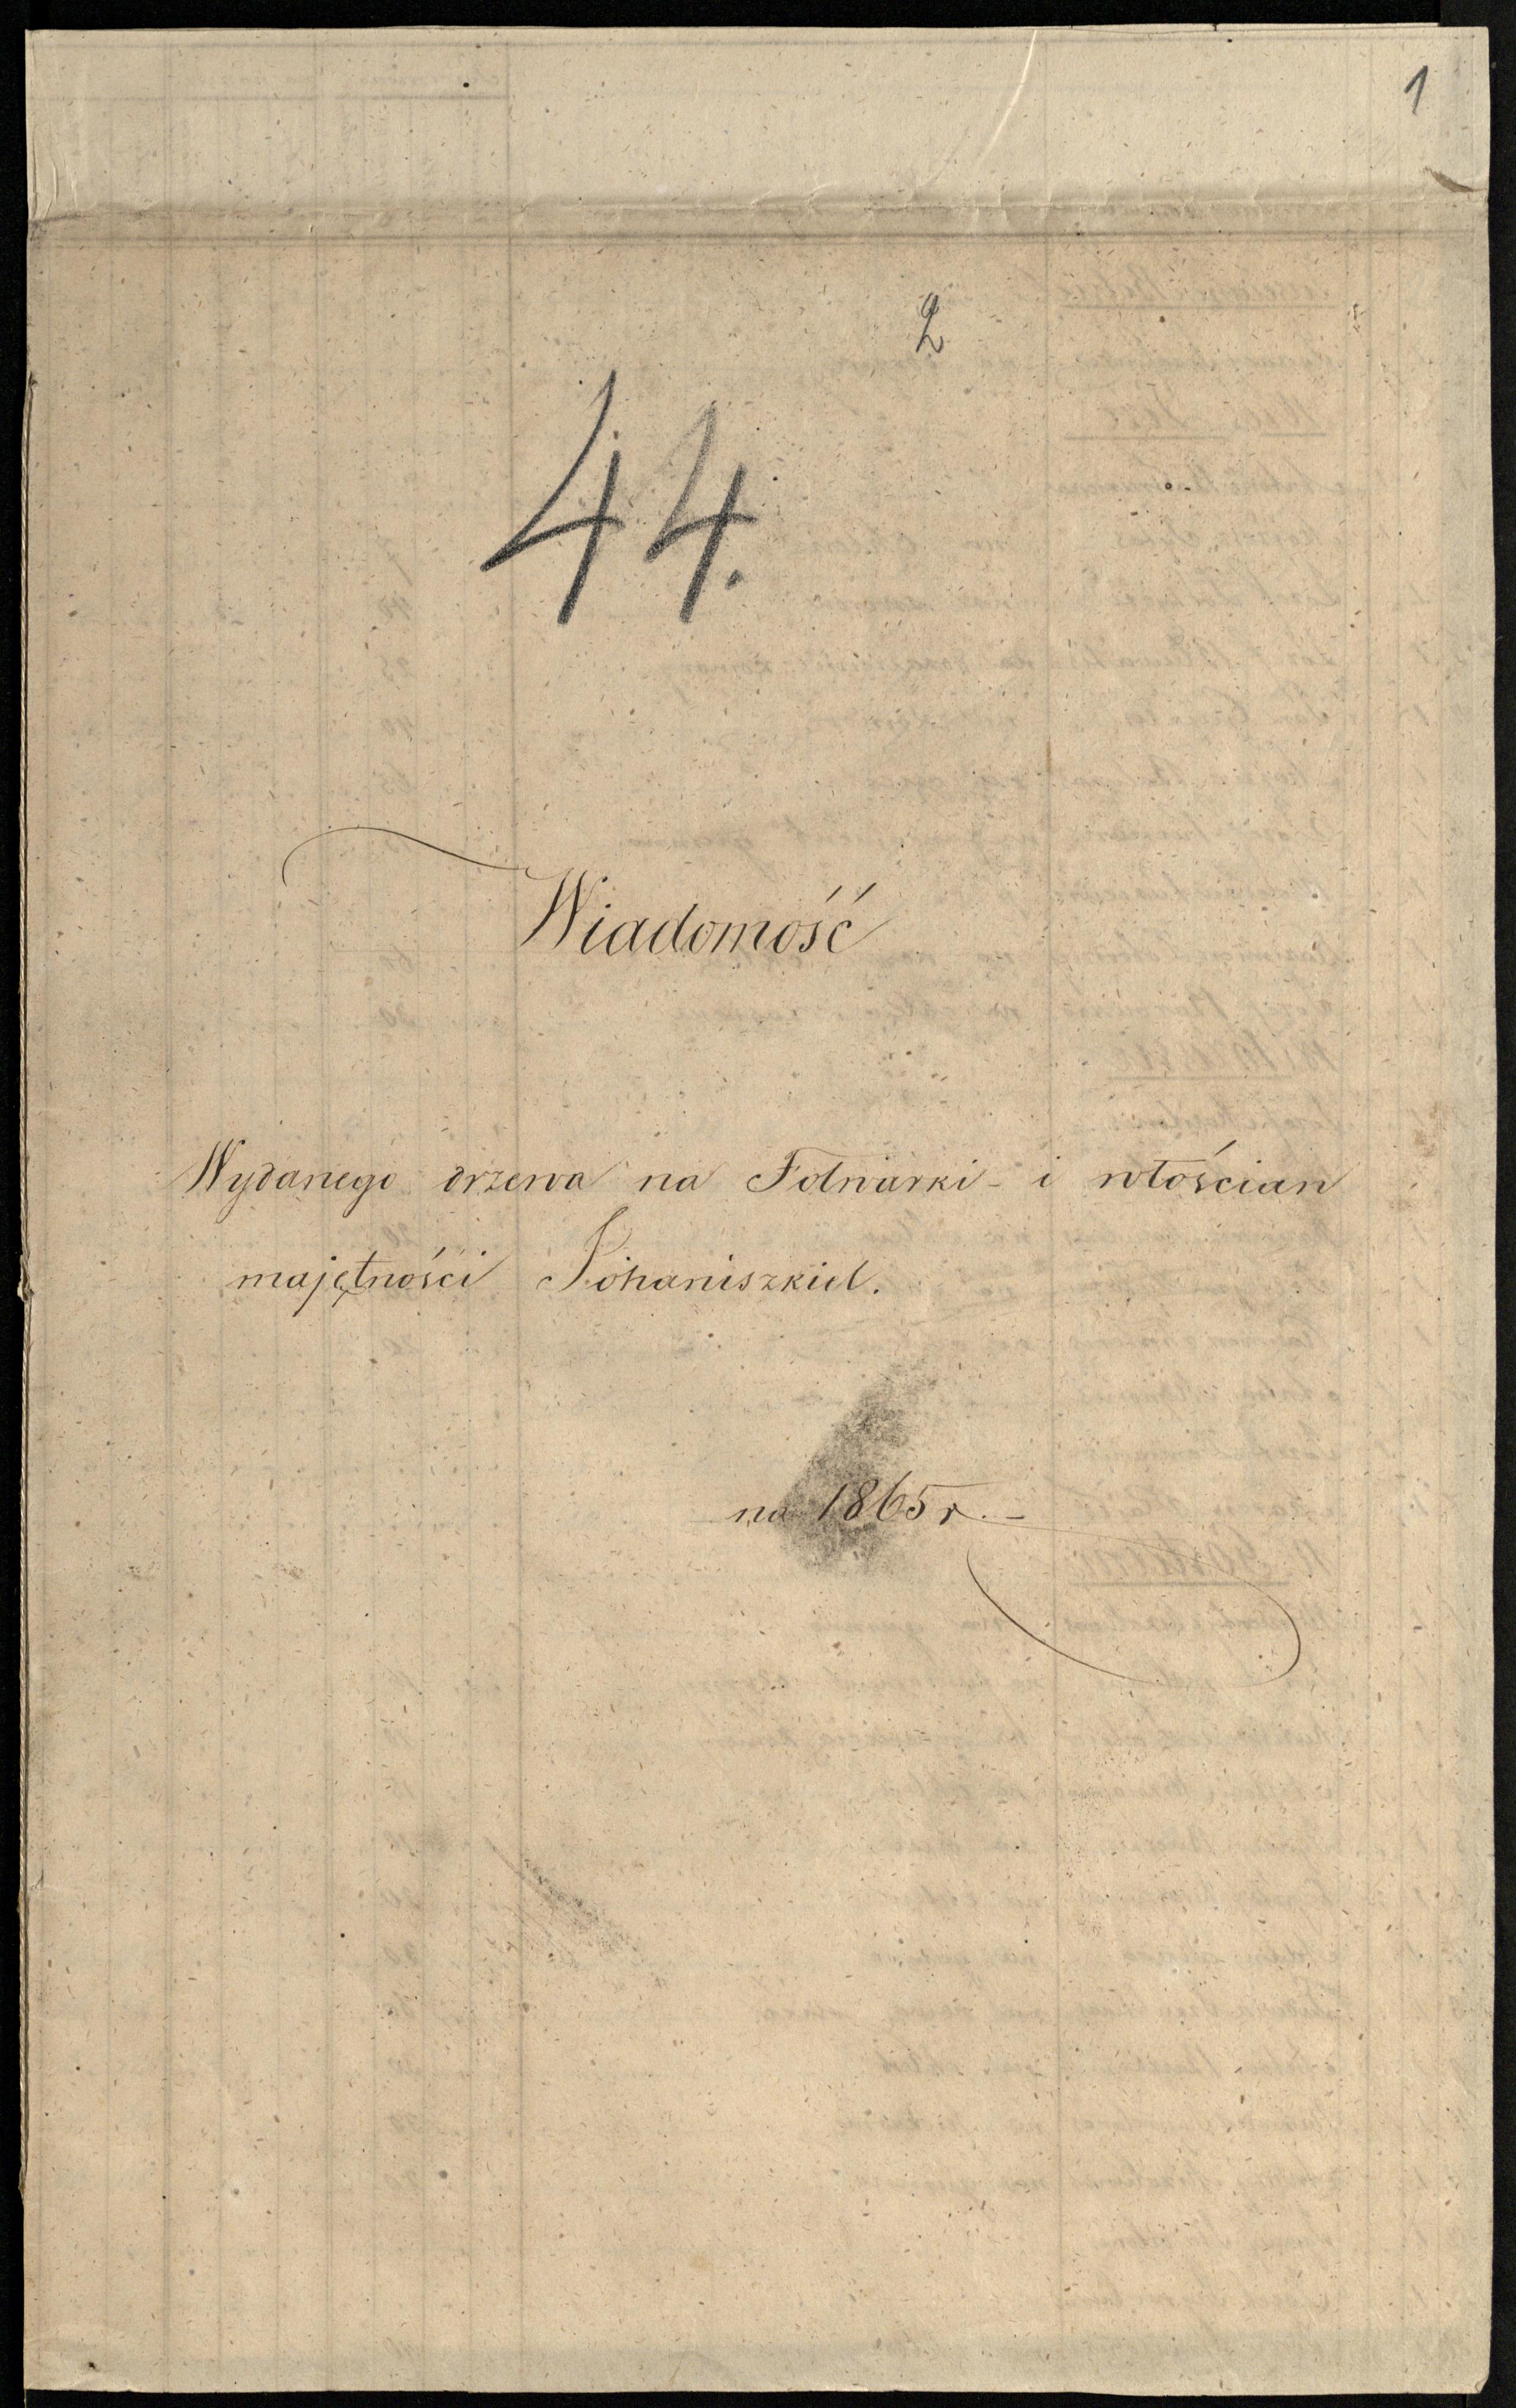 1
2
44.
Wiadomość
Wydanego drzewa na Folwarki - i włościan
majętności Johaniszkiel.
na 1865 r. -